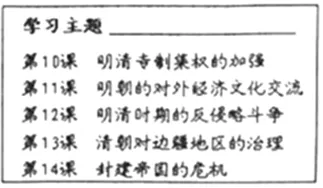 学习主题
第10课 明清专制集权的加强
第11课 明朝的对外经济文化交流
第12课 明清时期的反侵略斗争
第13课 清朝对边疆地区的治理
第14课 封建帝国的危机